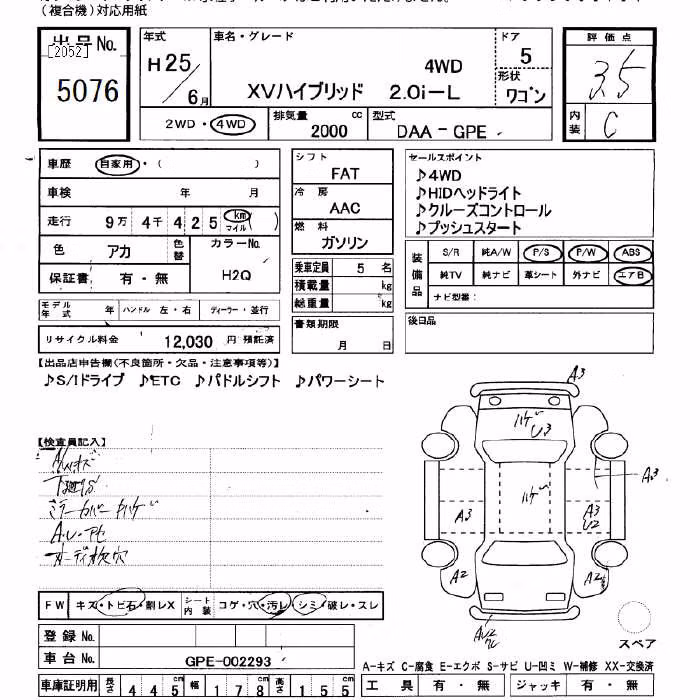 （複合機）対応用紙
出品No.
[2052]
5076
年式
H25/6月
車名・グレード
4WD
XVハイブリッド 2.0i-L
ドア
5
形状
ワゴン
評価点
3.5
内装
C
2WD・4WD
排気量
cc
2000
型式
DAA-GPE
車歴
自家用・（ ）
車検 年 月
走行 9万 4千 4 2 5 km マイル ( )
色 アカ 色替
カラーNo.
H2Q
保証書 有・無
シフト
FAT
冷房
AAC
燃料
ガソリン
乗車定員 5 名
積載量 kg
総重量 kg
セールスポイント
♪4WD
♪HIDヘッドライト
♪クルーズコントロール
♪プッシュスタート
装備品
S/R 純A/W P/S P/W ABS
純TV 純ナビ 革シート 外ナビ エアB
ナビ型番：
モデル年式 年 ハンドル 左・右 ディーラー・並行
リサイクル料金 12,030 円 預託済
書類期限
月 日
後日品
【出品店申告欄(不良箇所・欠品・注意事項等)】
♪S/Iドライブ ♪ETC ♪パドルシフト ♪パワーシート
【検査員記入】
A3
U3
A3
A3
A3
U2
A2
FW キズ・トビ石・割レX シート内装 コゲ・穴・汚レ・シミ・破レ・スレ
登録No.
車台No. GPE-002293
車庫証明用 長さ 4 4 5 幅 1 7 8 高さ 1 5 5
スペア
A-キズ C-腐食 E-エクボ S-サビ U-凹ミ W-補修 XX-交換済
工具 有・無 ジャッキ 有・無